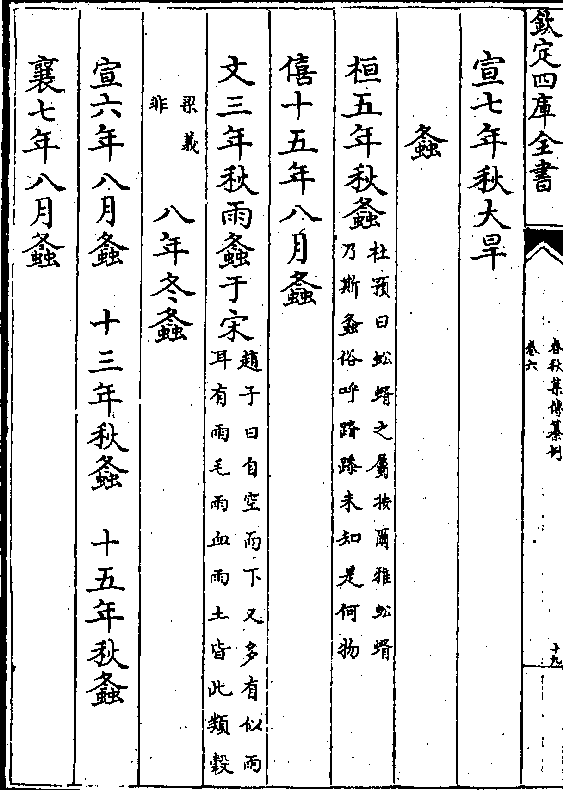 欽定四庫全書
春秋集傳纂例
卷六
十九
宣七年秋大旱
螽
桓五年秋螽
杜預曰蚣蝑之屬按爾雅蚣蝑
乃斯螽俗呼未知是何物
僖十五年八月螽
文三年秋雨螽于宋
趙子曰自空而下又多有似雨
耳有雨毛雨血雨土皆此類穀
梁義
非
八年冬螽
宣六年八月螽 十三年秋螽 十五年秋螽
襄七年八月螽